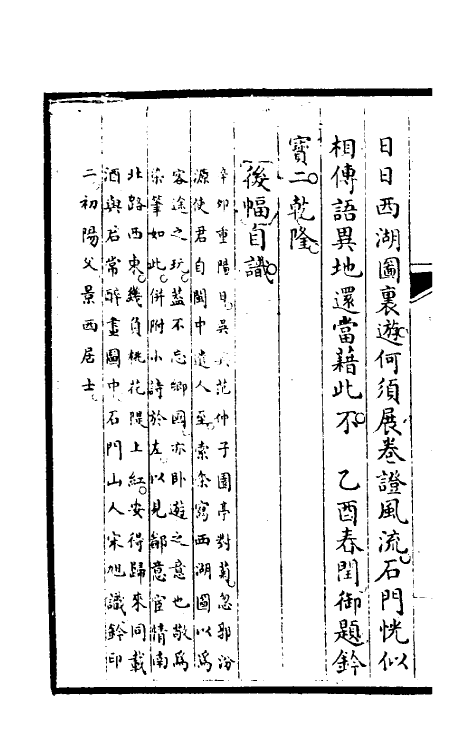 日日西湖圖裏遊何須展卷證風流石門恍似
相傳語異地還當藉此不　乙酉春閏御題鈐
寳二乾隆
後幅自識
辛卯重陽日吳　范仲子園亭對菊忽郭汾
源使君自閩中遣人至索余寫西湖圖以爲
客途之玩蓋不忘鄉國亦卧遊之意也敬爲
染筆如此併附小詩於左以見鄙意宦情南
北路西東幾負桃花隄上紅安得歸來同載
酒與君常醉畫圖中石門山人宋旭識鈐印
二初陽父景西居士